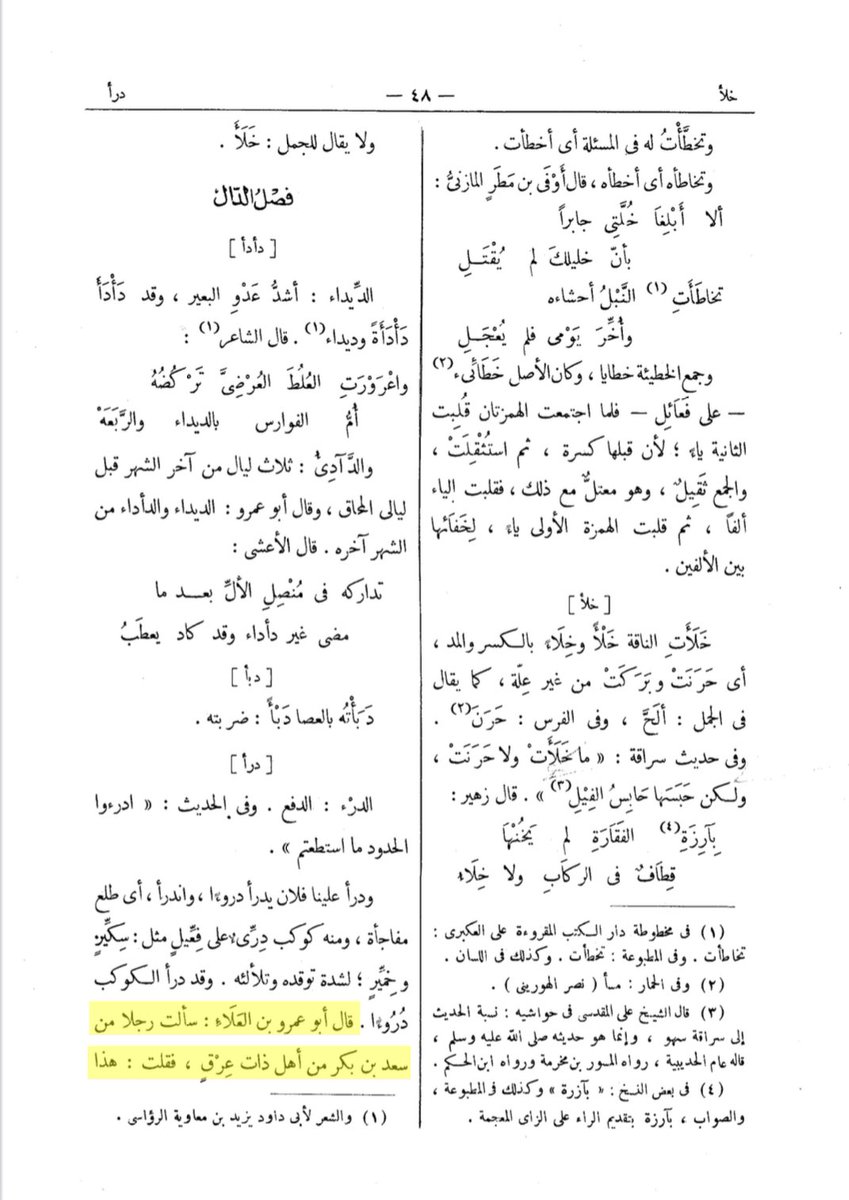 خلأ
— ٤٨ —
درأ
وتخطَّأْتُ له فى المسئلة أى أخطأت .
وتخاطأه أى أخطأه ، قال أَوْفَى بن مَطَرٍ المازنىُّ :
ألا أَبْلِغَا خُلَّتِى جابراً
بأنّ خليلكَ لم يُقْتَــلِ
تخاطَأَتِ (١) النَّبْلُ أحشاءه
وأُخِّرَ يَوْمِى فلم يُعْجَــلِ
وجمع الخطيئة خطايا ، وكان الأصل خَطَائِىء (٢)
— على فَعَائِلِ — فلما اجتمعت الهمزتان قُلِبت
الثانية ياءً ؛ لأن قبلها كسرة ، ثم استُثْقِلَتْ ،
والجمع ثَقِيلٌ ، وهو معتلٌّ مع ذلك ، فقلبت الياء
ألفاً ، ثم قلبت الهمزة الأولى ياءً ، لِخَفَائها
بين الألفين .
[ خلأ ]
خَلَأَتِ الناقة خَلْأً وخِلَاءً بالكسر والمد ،
أى حَرَنَتْ وبَرَكَتْ من غير عِلّة ، كما يقال
فى الجمل : أَلَحَّ ، وفى الفرس : حَرَنَ (٢) .
وفى حديث سراقة : « ما خَلَأَتْ ولا حَرَنَتْ ،
ولكن حَبَسَها حَابِسُ الفِيْلِ (٣) » . قال زهير :
بِآرِزَةِ (٤) الفَقَارَةِ لم يَخُنْهَا
قِطَافٌ فى الركابِ ولا خِلَاءُ
(١) فى مخطوطة دار الكتب المقروءة على العكبرى :
تخاطأت . وفى المطبوعة : تخطأت . وكذلك فى اللسان .
(٢) وفى الحمار : مسأ ( نصر الهورينى ) .
(٣) قال الشيخ على المقدسى فى حواشيه : نسبة الحديث
إلى سراقة سهو ، وإنما هو حديثه صلى الله عليه وسلم ،
قاله عام الحديبية ، رواه المسور بن مخرمة ورواه ابن الحكم .
(٤) فى بعض النسخ : « بآزرة » وكذلك فى المطبوعة ،
والصواب ، بآرزة بتقديم الراء على الزاى المعجمة .
ولا يقال للجمل : خَلَأَ .
فصْلُ الدّال
[ دأدأ ]
الدِّيداء : أشدُّ عَدْوِ البعير ، وقد دَأْدَأَ
دَأْدَأَةً وديداء (١) . قال الشاعر (١) :
واعْرَوْرَتِ العُلُطَ العُرْضِىَّ تَرْكُضُهُ
أُمُّ الفوارس بالديداء والرَّبَعَهْ
والدَّآدِىُّ : ثلاث ليال من آخر الشهر قبل
ليالى المحاق ، وقال أبو عمرو : الديداء والدأداء من
الشهر آخره . قال الأعشى :
تداركه فى مُنْصِلِ الألِّ بعــد ما
مضى غير دأداء وقد كاد يعطَبُ
[ دبأ ]
دَبَأْتُه بالعصا دَبْأً : ضربته .
[ درأ ]
الدرْء : الدفع . وفى الحديث : « ادرءوا
الحدود ما استطعتم » .
ودرأ علينا فلان يدرأ دروءًا ، واندرأ ، أى طلع
مفاجأة ، ومنه كوكب دِرِّىء على فِعِّيلٍ مثل : سِكِّيرٍ
وخِمِّيرٍ ؛ لشدة توقده وتلألئه . وقد درأ الكوكب
دُرُوءًا . قال أبو عمرو بن العَلَاءِ : سألت رجلا من
سعد بن بكر من أهل ذات عِرْقٍ ، فقلت : هذا
(١) والشعر لأبى داود يزيد بن معاوية الرؤاسى .